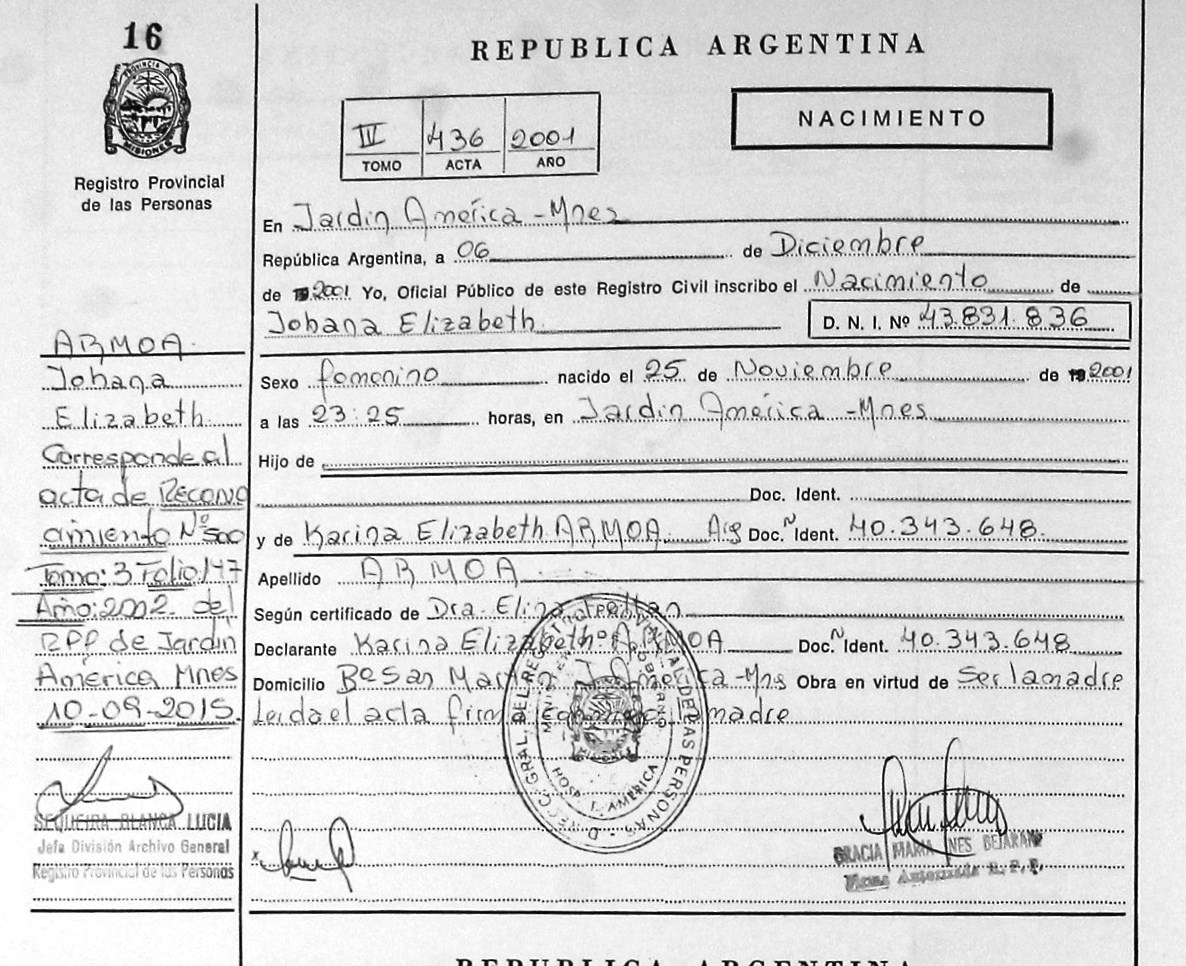 16
REPUBLICA ARGENTINA
PROVINCIA
MISIONES
Registro Provincial
de las Personas
IV 436 2001
TOMO ACTA AÑO
NACIMIENTO
En Jardín América - Mnes
República Argentina, a 06 de Diciembre
de 2001 Yo, Oficial Público de este Registro Civil inscribo el Nacimiento de
Johana Elizabeth D. N. I. Nº 43.831.836
Sexo femenino nacido el 25 de Noviembre de 2001
a las 23:25 horas, en Jardín América - Mnes
Hijo de
Doc. Ident.
y de Karina Elizabeth ARMOA Doc. Ident. 40.343.648
Apellido ARMOA
Según certificado de Dra. Elina
Declarante Karina Elizabeth ARMOA Doc. Ident. 40.343.648
Domicilio Bº San Martín J. América - Mns Obra en virtud de Ser la madre
Leída el acta firma la madre
ARMOA
Johana
Elizabeth
Corresponde al
acta de Recono
cimiento Nº 500
Tomo: 3 Folio 147
Año: 2002 del
RPP de Jardín
América Mnes
10-09-2015
SEQUEIRA BLANCA LUCIA
Jefa División Archivo General
Registro Provincial de las Personas
DIRECC. GRAL. DEL REGISTRO PROVINCIAL DE LAS PERSONAS
MINISTERIO DE GOBIERNO
MISIONES
HOSP. J. AMERICA
GRACIA MARIA INES BEJARANO
REPUBLICA ARGENTINA